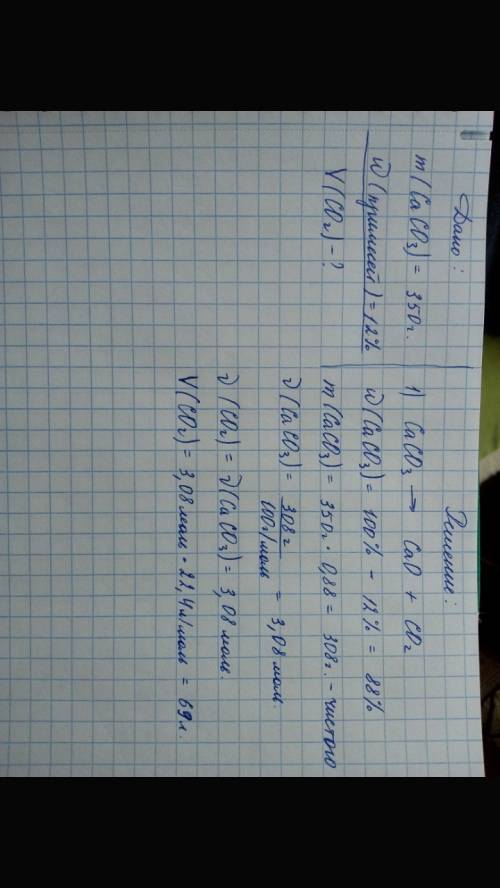 Дано:
m(CaCO₃) = 350г.
ω(примесей) = 12%
V(CO₂) - ?
Решение:
1) CaCO₃ → CaO + CO₂
ω(CaCO₃) = 100% - 12% = 88%
m(CaCO₃) = 350г · 0,88 = 308г. - чистого
ν(CaCO₃) = 308г / 100г/моль = 3,08 моль.
ν(CO₂) = ν(CaCO₃) = 3,08 моль.
V(CO₂) = 3,08 моль · 22,4л/моль = 69л.